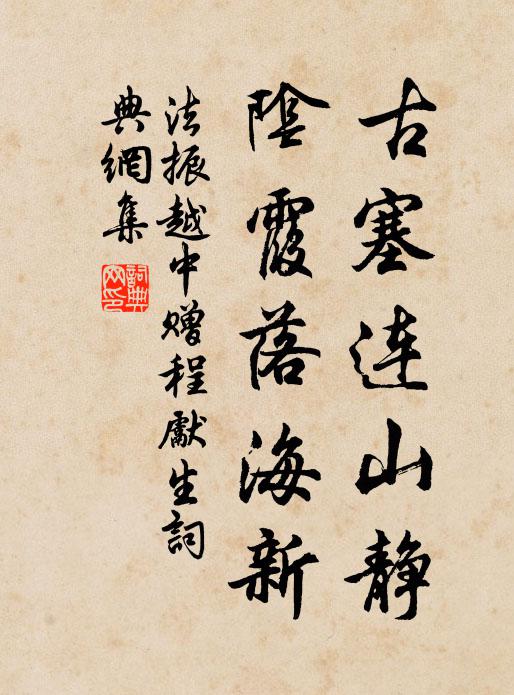 古塞连山静
陰霞落海新
法振越中赠程獻生詞
典網集
詞典网印